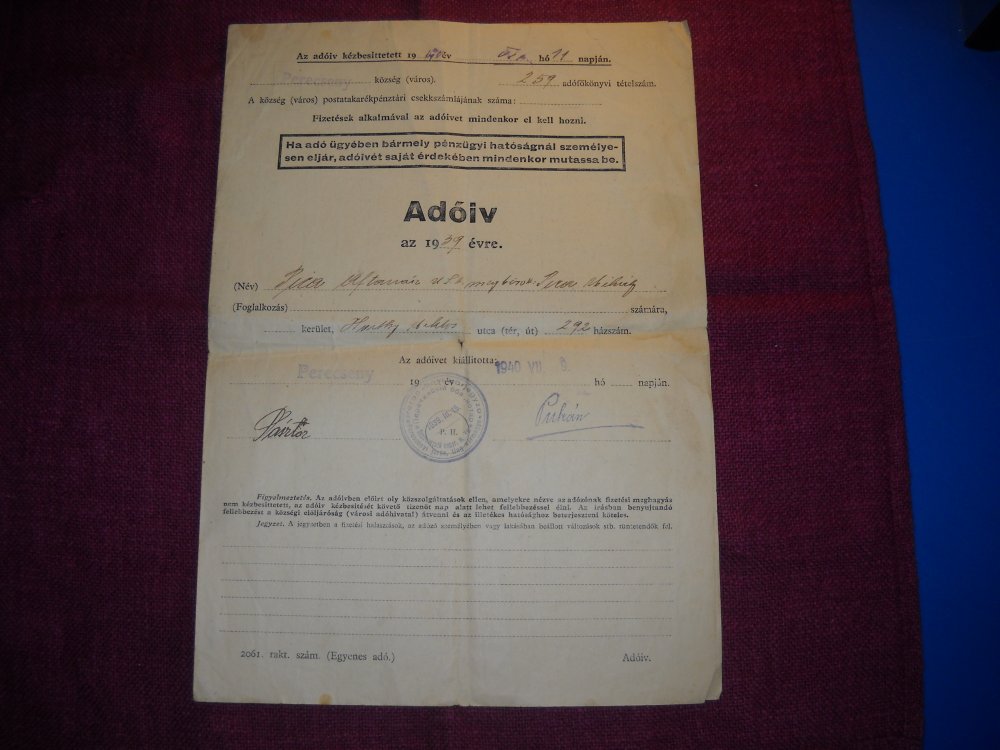 Az adóiv kézbesittetett 19 év hó 11 napján.
Perecseny község (város). 259 adófőkönyvi tételszám.
A község (város) postatakarékpénztári csekkszámlájának száma:
Fizetések alkalmával az adóivet mindenkor el kell hozni.
Ha adó ügyében bármely pénzügyi hatóságnál személye-
sen eljár, adóivét saját érdekében mindenkor mutassa be.
Adóiv
az 1939 évre.
(Név)
(Foglalkozás) számára,
kerület, Horthy Miklós utca (tér, út) 292 házszám.
Az adóivet kiállította:
Perecseny 19 év 1940 VII 8. hó napján.
P. H.
Figyelmeztetés. Az adóivben előirt oly közszolgáltatások ellen, amelyekre nézve az adózónak fizetési meghagyás
nem kézbesittetett, az adóiv kézbesitését követő tizenöt nap alatt lehet fellebbezéssel élni. Az irásban benyujtandó
fellebbezést a községi elöljáróság (városi adóhivatal) átvenni és az illetékes hatósághoz beterjeszteni köteles.
Jegyzet. A jegyzetben a fizetési halasztások, az adózó személyében vagy lakásában beállott változások stb. tüntetendők fel.
2061. rakt. szám. (Egyenes adó.) Adóiv.